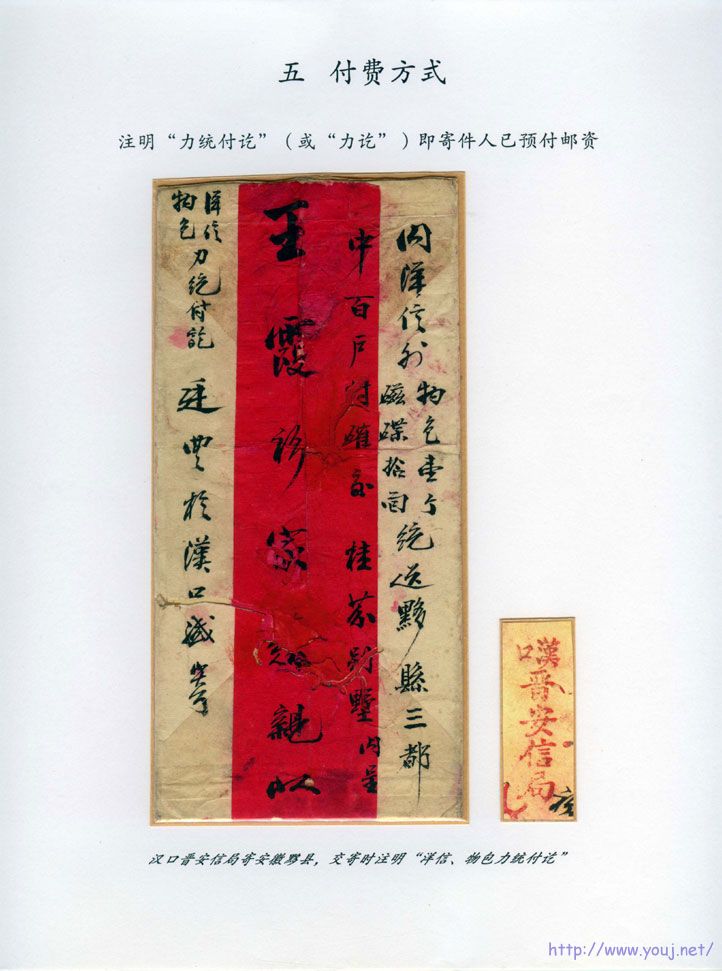 五 付费方式
注明“力统付讫”（或“力讫”）即寄件人已预付邮资
内洋信外物包壹个
磁碟拾
统送黟縣三都
中百戶付確交桂芬别墅内呈
王霞
家
親
洋信
物包
力統付訖
廷豐於漢口緘
漢口
晋安信局
汉口晋安信局寄安徽黟县，交寄时注明“洋信、物包力统付讫”
http://www.youj.net/